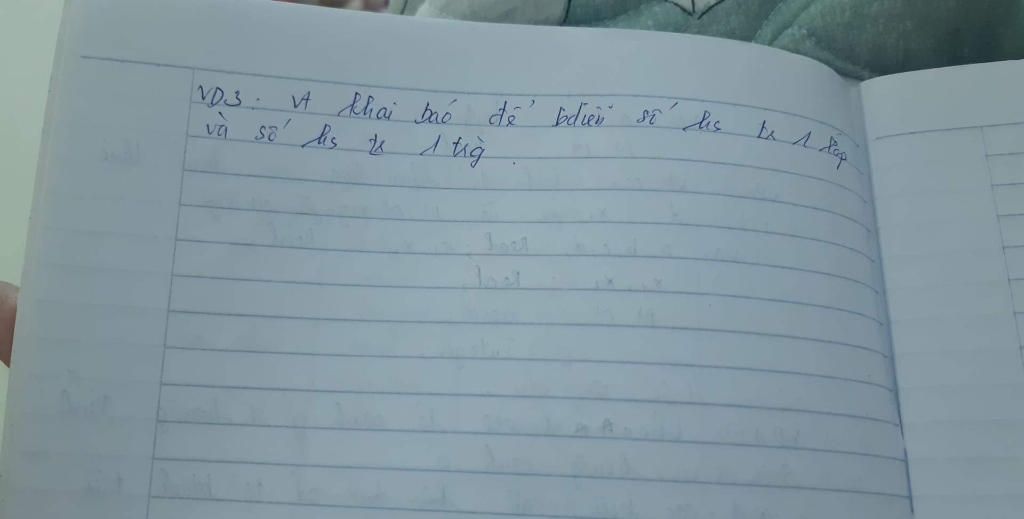 VD3. Vt khai báo để bdiễn số hs tr 1 lớp
và số hs tr 1 trg.